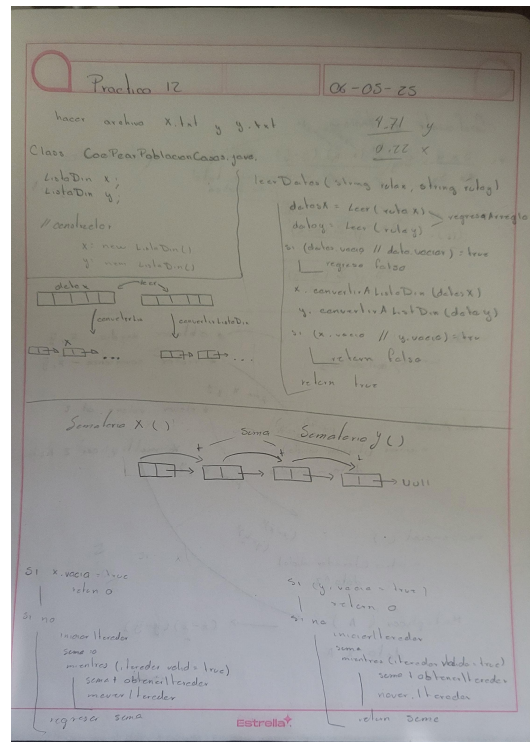 Practica 12
06-05-25
hacer archivo x.txt y y.txt
4.71 y
0.22 x
Class CooPearPoblacionCasos.java,
ListaDin x;
ListaDin y;
// constructor
x: new ListaDin()
y: new ListaDin()
leerDatos(string rutax, string rutay)
datosX = Leer(ruta X)
datoy = Leer(rutay)
regresa Arreglo
si (datos.vacio // dato.vacios) = true
regresa falso
x. convertirA ListaDin (datosX)
y. convertirA ListDin (datoy)
si (x.vacio // y.vacio) = tru
return falso
return true
datox
convertir
convertirListaDin
x
...
...
Sumatoria X ()
Suma
Sumatoria y ()
+
+
+
Null
Si x.vacia = true
return 0
Si no
iniciarIterador
suma
mientras (iterador valid = true)
suma + obtenerIterador
moverIterador
regresar suma
Si (y.vacia = true)
return 0
Si no
iniciarIterador
suma
mientras (iterador valido = true)
suma + obtenerIterador
mover.Iterador
return suma
Estrella